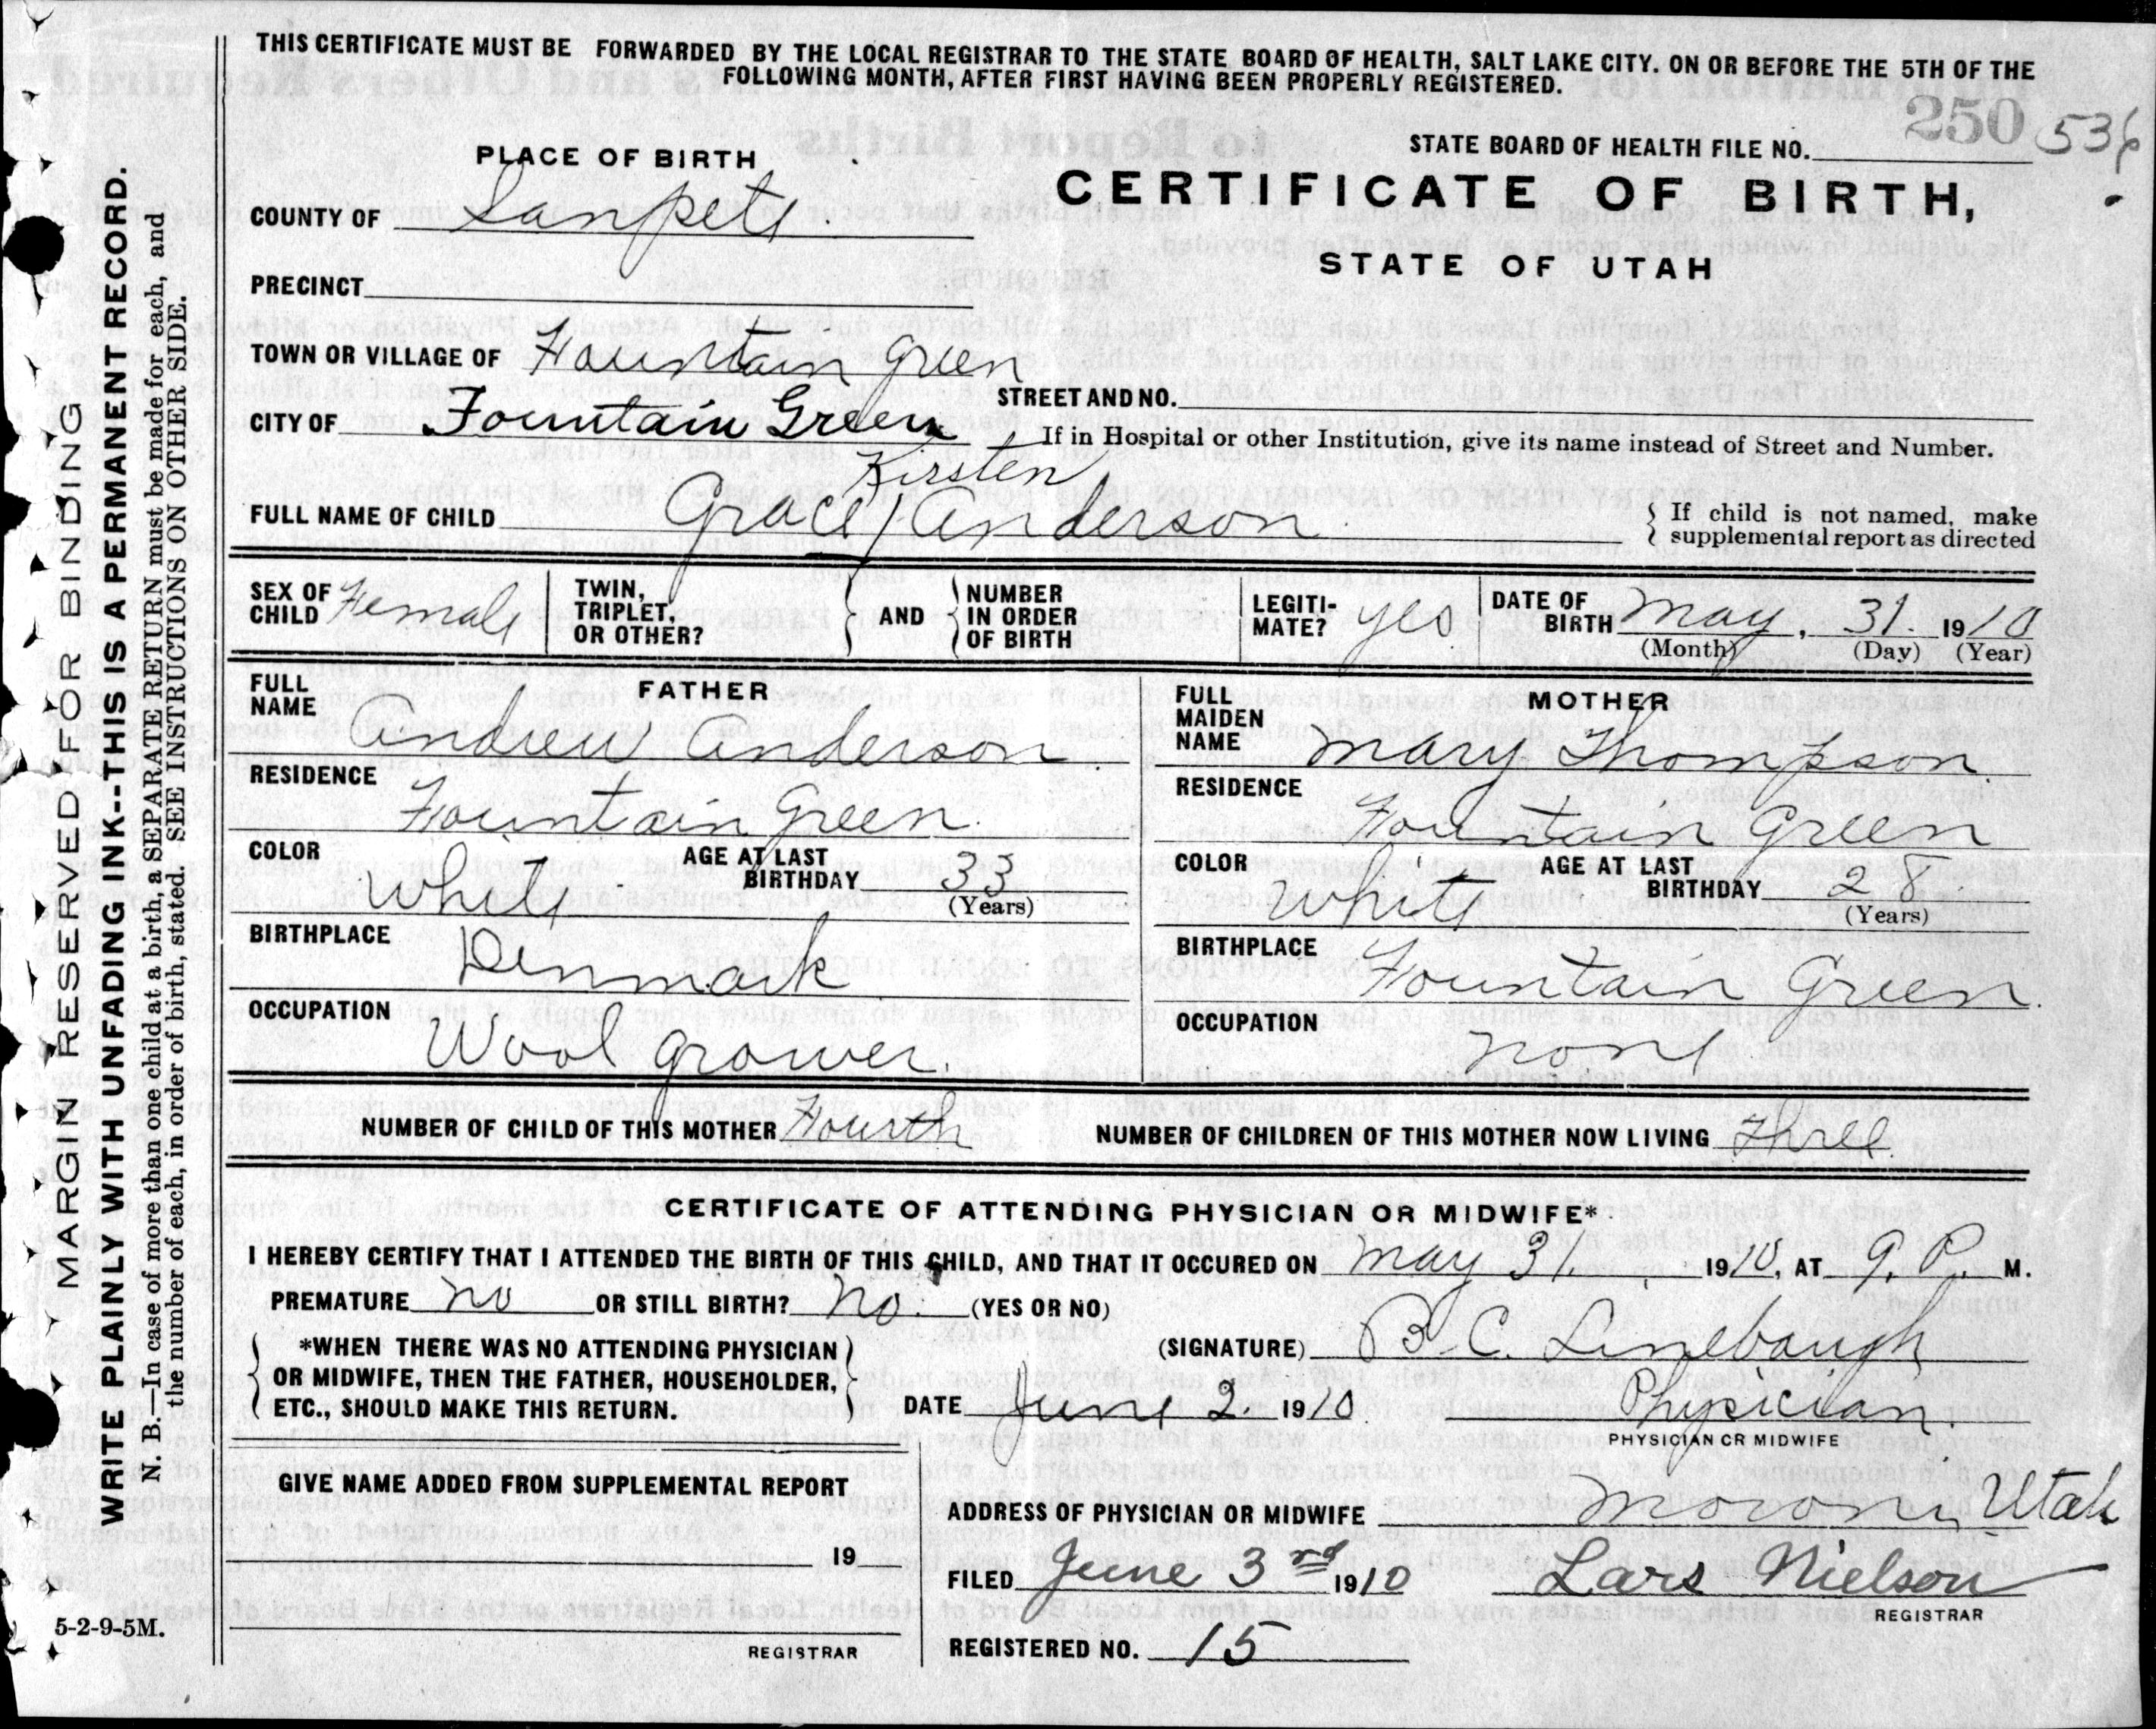 THIS CERTIFICATE MUST BE FORWARDED BY THE LOCAL REGISTRAR TO THE STATE BOARD OF HEALTH, SALT LAKE CITY. ON OR BEFORE THE 5TH OF THE
FOLLOWING MONTH, AFTER FIRST HAVING BEEN PROPERLY REGISTERED.
250 536
STATE BOARD OF HEALTH FILE NO.
PLACE OF BIRTH
CERTIFICATE OF BIRTH,
STATE OF UTAH
COUNTY OF Sanpete
PRECINCT
TOWN OR VILLAGE OF Fountain Green
STREET AND NO.
CITY OF Fountain Green
If in Hospital or other Institution, give its name instead of Street and Number.
Kirsten
FULL NAME OF CHILD Grace / Anderson
If child is not named, make
supplemental report as directed
SEX OF CHILD Female
TWIN, TRIPLET, OR OTHER?
AND
NUMBER IN ORDER OF BIRTH
LEGITI-MATE? yes
DATE OF BIRTH May, 31. 1910
(Month) (Day) (Year)
FATHER
FULL NAME Andrew Anderson.
RESIDENCE Fountain Green.
COLOR White
AGE AT LAST BIRTHDAY 33
(Years)
BIRTHPLACE Denmark
OCCUPATION Wool grower.
MOTHER
FULL MAIDEN NAME Mary Thompson.
RESIDENCE Fountain Green
COLOR White
AGE AT LAST BIRTHDAY 28.
(Years)
BIRTHPLACE Fountain Green.
OCCUPATION none
NUMBER OF CHILD OF THIS MOTHER Fourth
NUMBER OF CHILDREN OF THIS MOTHER NOW LIVING Three.
CERTIFICATE OF ATTENDING PHYSICIAN OR MIDWIFE*
I HEREBY CERTIFY THAT I ATTENDED THE BIRTH OF THIS CHILD, AND THAT IT OCCURED ON May 31. 1910, AT 9. P. M.
PREMATURE no OR STILL BIRTH? no. (YES OR NO)
*WHEN THERE WAS NO ATTENDING PHYSICIAN
OR MIDWIFE, THEN THE FATHER, HOUSEHOLDER,
ETC., SHOULD MAKE THIS RETURN.
(SIGNATURE) B. C. Linebaugh
DATE June 2 1910.
Physician.
PHYSICIAN OR MIDWIFE
GIVE NAME ADDED FROM SUPPLEMENTAL REPORT
19
REGISTRAR
ADDRESS OF PHYSICIAN OR MIDWIFE Moroni, Utah
FILED June 3rd 1910 Lars Nielson
REGISTRAR
REGISTERED NO. 15
5-2-9-5M.
MARGIN RESERVED FOR BINDING
WRITE PLAINLY WITH UNFADING INK--THIS IS A PERMANENT RECORD.
N. B.—In case of more than one child at a birth, a SEPARATE RETURN must be made for each, and
the number of each, in order of birth, stated. SEE INSTRUCTIONS ON OTHER SIDE.